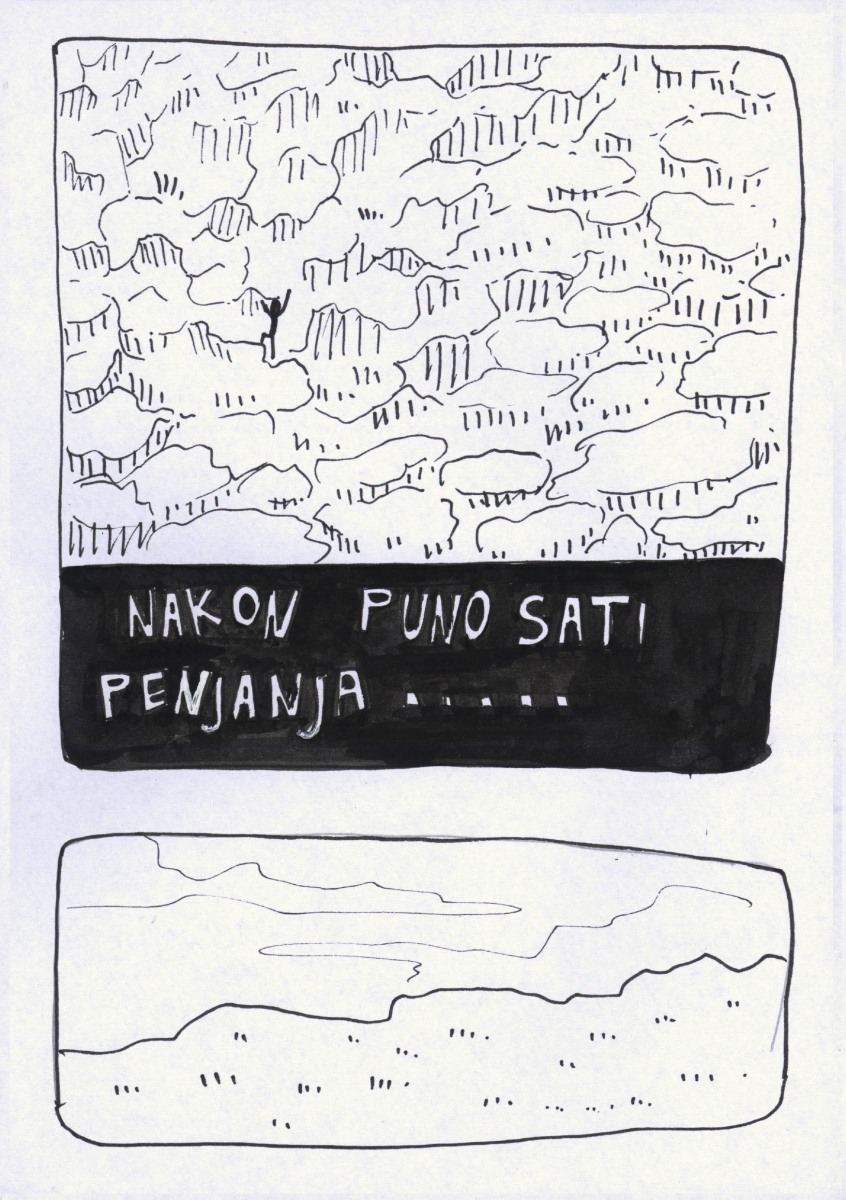 NAKON PUNO SATI
PENJANJA .....